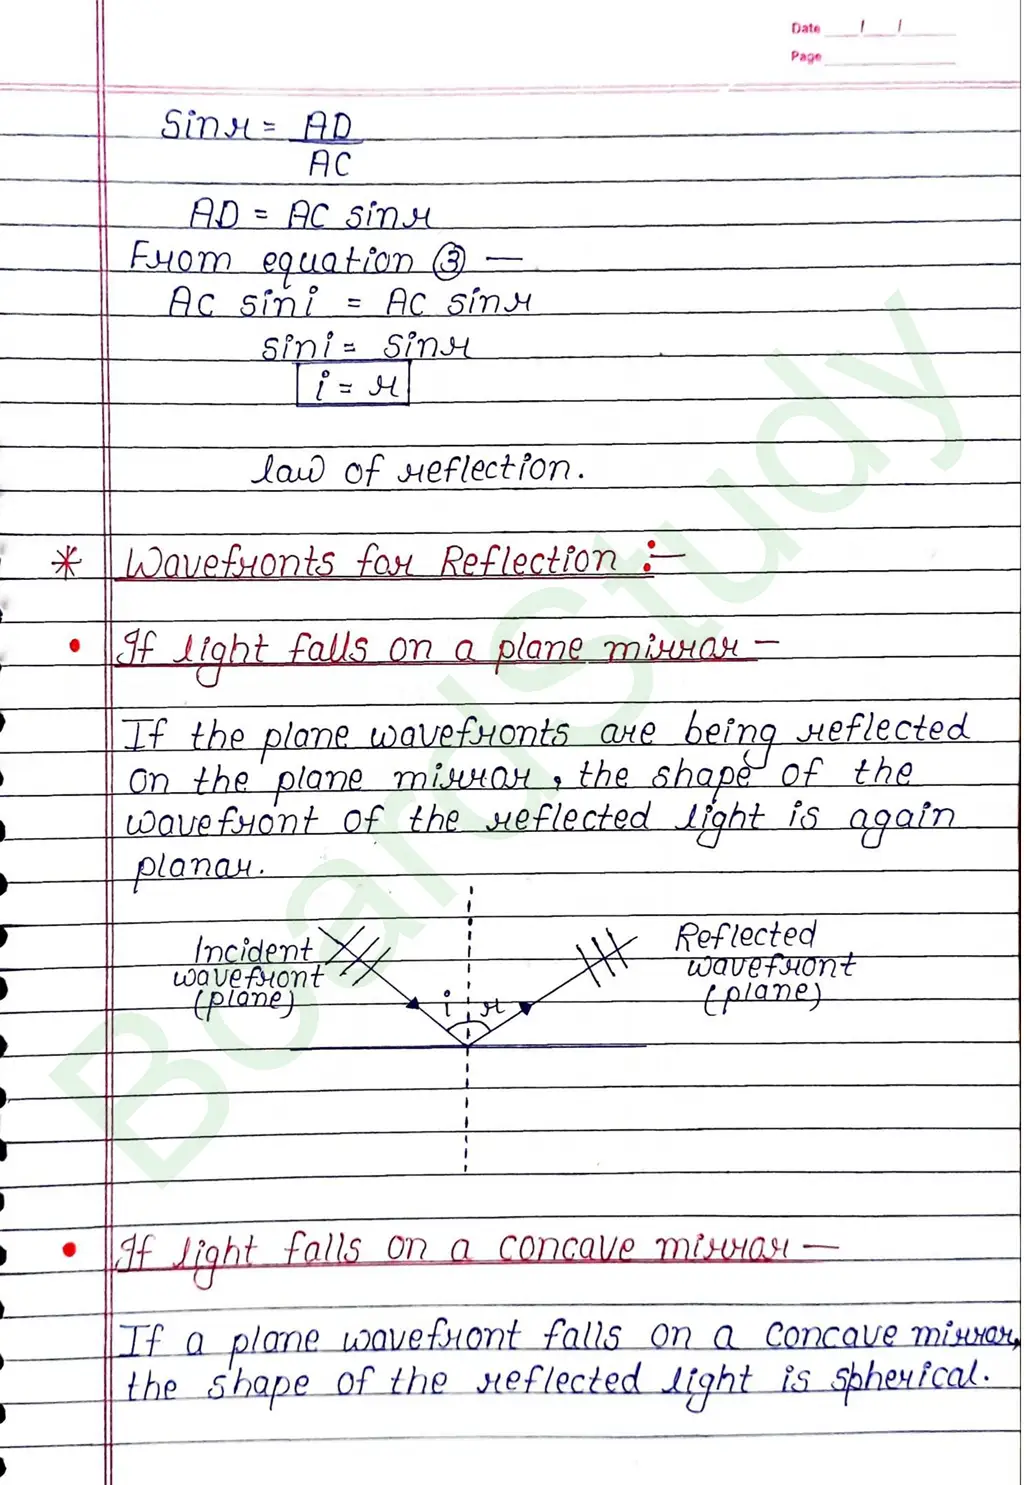 Date / /
Page
Sin r = AD
AC
AD = AC sin r
From equation ③ —
AC sin i = AC sin r
sin i = sin r
i = r
law of reflection.
* Wavefronts for Reflection :-
• If light falls on a plane mirror -
If the plane wavefronts are being reflected
on the plane mirror, the shape of the
wavefront of the reflected light is again
planar.
Incident
wavefront
(plane)
i r
Reflected
wavefront
(plane)
• If light falls on a concave mirror -
If a plane wavefront falls on a concave mirror,
the shape of the reflected light is spherical.
BoardStudy